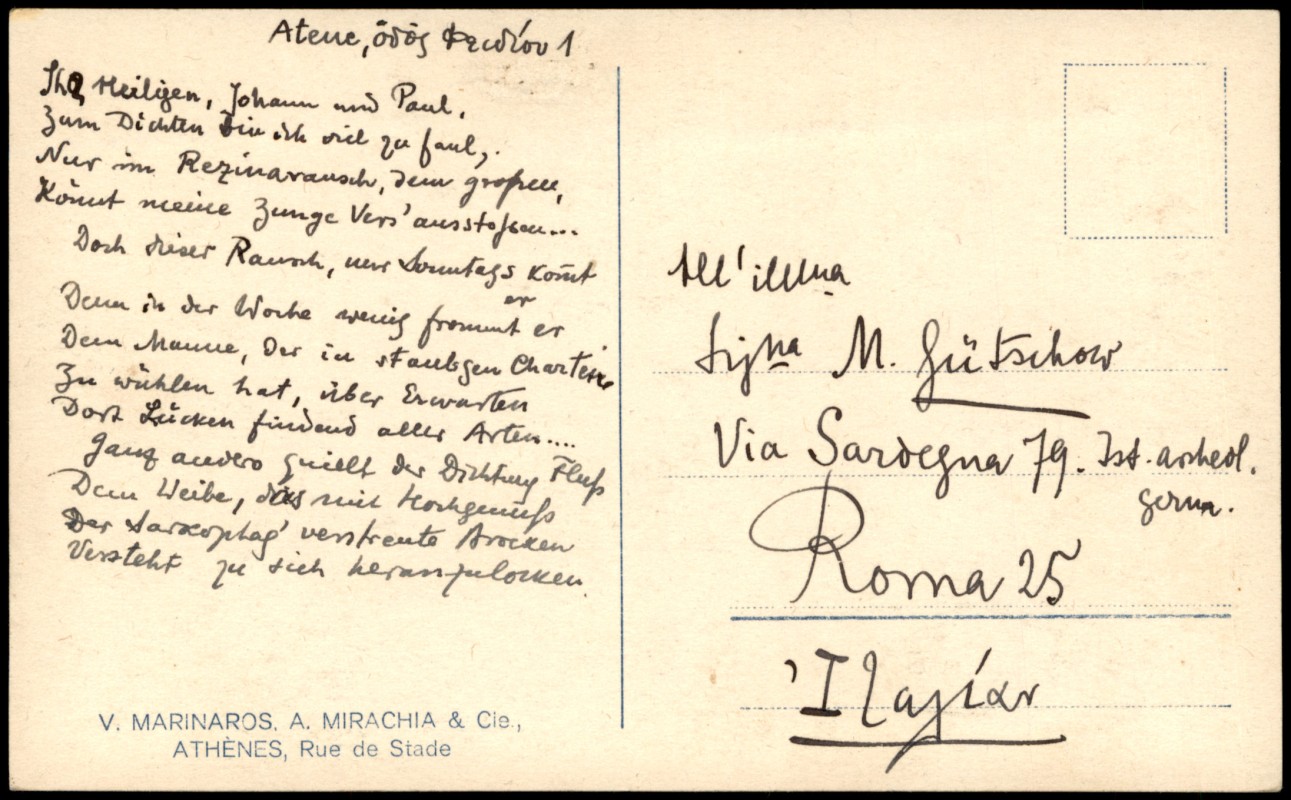 Atene, ὁδὸς Φειδίου 1
Ihr Heiligen, Johann und Paul,
Zum Dichten bin ich viel zu faul,
Nur im Rezinarausch, dem großen,
Könnt meine Zunge Vers' ausstoßen...
Doch dieser Rausch, nur Sonntags kom̄t
er
Denn in der Woche wenig frommt er
Dem Manne, der in staubgen Charteien
Zu wühlen hat, über Erwarten
Dort Lücken findend aller Arten....
Ganz anders quillt der Dichtung Fluß
Dem Weibe, das mit Hochgenuß
Der Sarkophag' verstreute Brocken
Versteht zu sich heranzulocken.
V. MARINAROS, A. MIRACHIA & Cie.,
ATHÈNES, Rue de Stade
All'illma
Signa M. Gütschow
Via Sardegna 79. Ist. archeol.
germ.
Roma 25
Ἰταλίαν